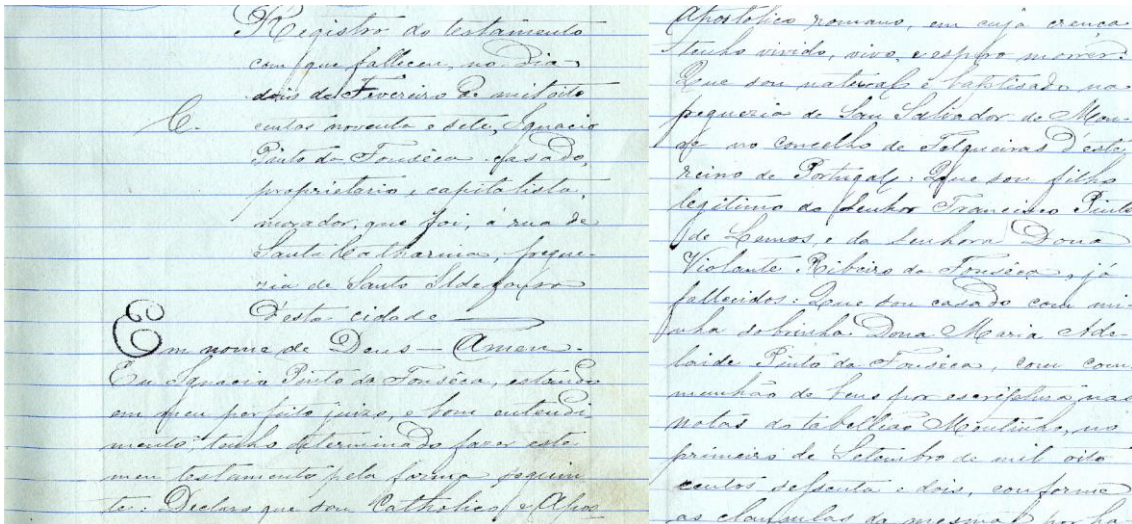 Registro do testamento
com que falleceu, no dia
dois de Fevereiro de mil oito
C.
centos noventa e sete, Ignacio
Pinto da Fonsêca, casado,
proprietario, capitalista,
morador, que foi, á rua de
Santa Catharina, fregue-
zia de Santo Ildefonso
d'esta cidade
Em nome de Deus — Amen.
Eu Ignacio Pinto da Fonsêca, estando
em meu perfeito juizo, e bom entendi-
mento, tenho determinado fazer este
meu testamento pela forma seguin
te: Declaro que sou Catholico e Apos
Apostolico romano, em cuja crença
tenho vivido, vivo, e espero morrer:
Que sou natural e baptisado na
freguezia de San Salvador de Mon-
no concelho de Felgueiras d'este
reino de Portugal: Que sou filho
legitimo do Senhor Francisco Pinto
de Lemos, e da Senhora Dona
Violante Ribeiro da Fonsêca, já
fallecidos: Que sou casado com mi-
nha sobrinha Dona Maria Ade-
laide Pinto da Fonsêca, com com
munhão de bens por escriptura nas
notas do tabellião Moutinho, no
primeiro de Setembro de mil oito
centos sessenta e dois, conforme
as clausulas da mesma por